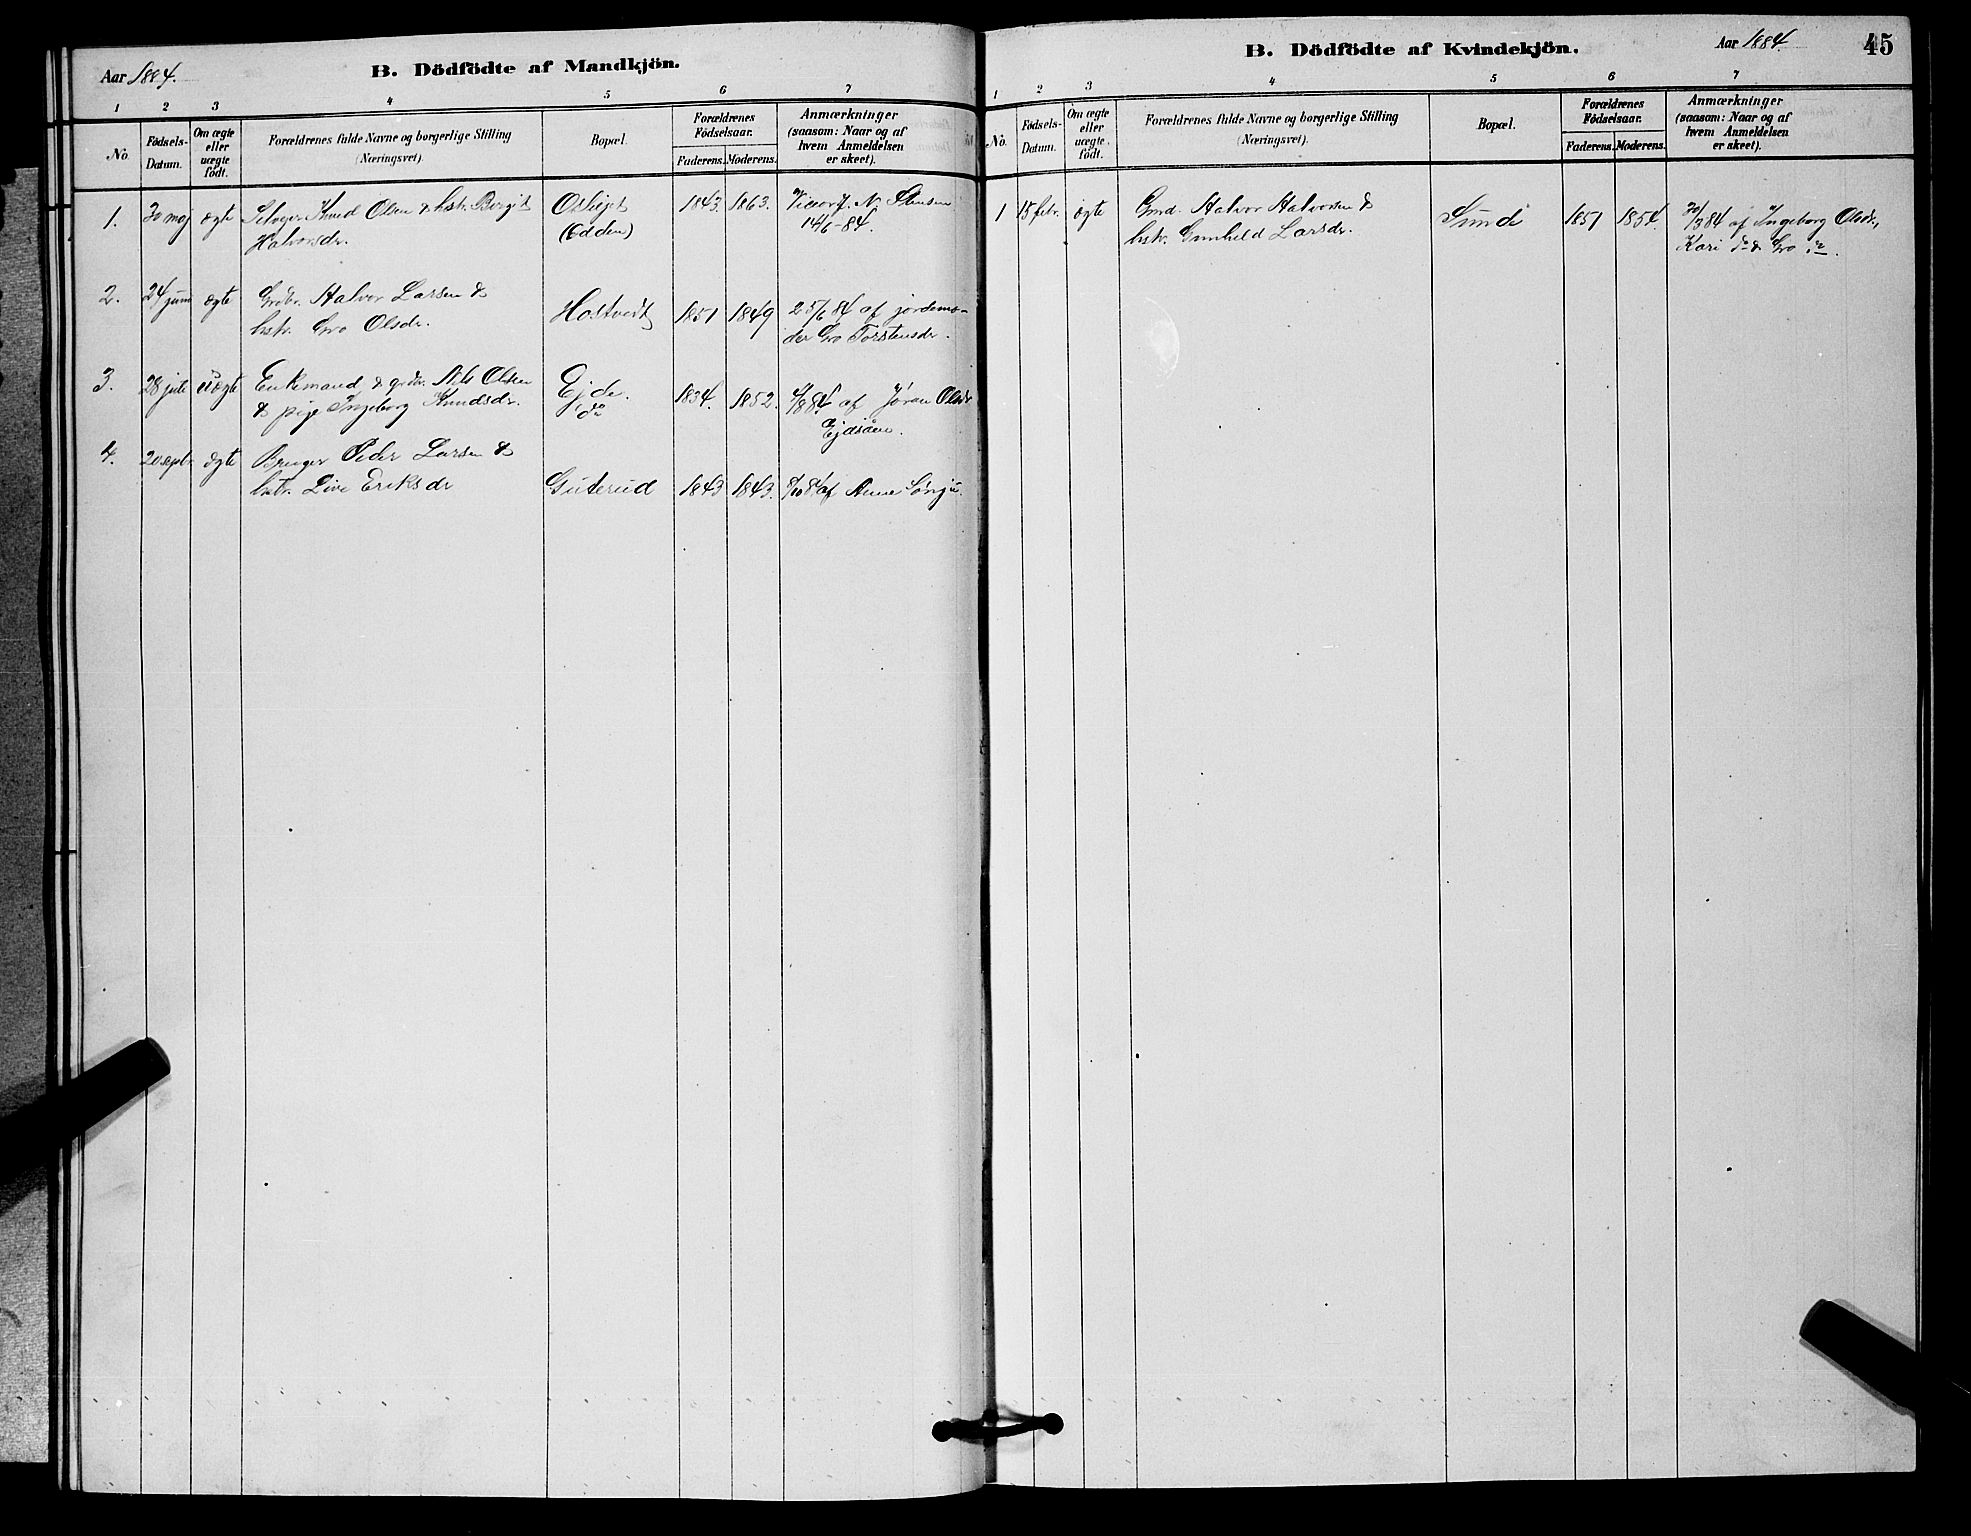 Aar 1884.
B. Dödfödte af Mandkjön.
1 2 3 4 5 6 7
No.
Födsels-
Datum.
Om ægte
eller
uægte
födt.
Forældrenes fulde Navne og borgerlige Stilling
(Næringsvei).
Bopæl.
Forældrenes
Födselsaar.
Faderens. Moderens.
Anmærkninger
(saasom: Naar og af
hvem Anmeldelsen
er skeet).
1. 30 maj ægte Selvejer Knud Olsen & hstr. Bergit 1843. 1863.
Halvorsdr. (Edden) 14/6-84.
2. 24 juni ægte Grdbr. Halvor Larsen &
hstr. Gro Olsdr. Hostvedt 1851 1849 25/6 84 af jordemo-
der Gro Torstensdr.
3. 28 juli uægte Enkemand & grdbr. Nils Olsen
& pige Ingeborg Knudsdr. Ejde. 1834. 1852. af Jøran Olsdr
do Ejdsåen.
4. 20 septr. ægte Bruger Peder Larsen &
hstr. Live Eriksdr Guterud 1843 1843. af Anne
B. Dödfödte af Kvindekjön.
Aar 1884.
45
1 2 3 4 5 6 7
No.
Födsels-
Datum.
Om ægte
eller
uægte
födt.
Forældrenes fulde Navne og borgerlige Stilling
(Næringsvei).
Bopæl.
Forældrenes
Födselsaar.
Faderens. Moderens.
Anmærkninger
(saasom: Naar og af
hvem Anmeldelsen
er skeet).
1 15 febr. ægte Gmd. Halvor Halvorsen & 1851 1854. 30/3 84 af Ingeborg Olsdr.,
hstr. Gunhild Larsdr. Sundi Kari do & Gro do.